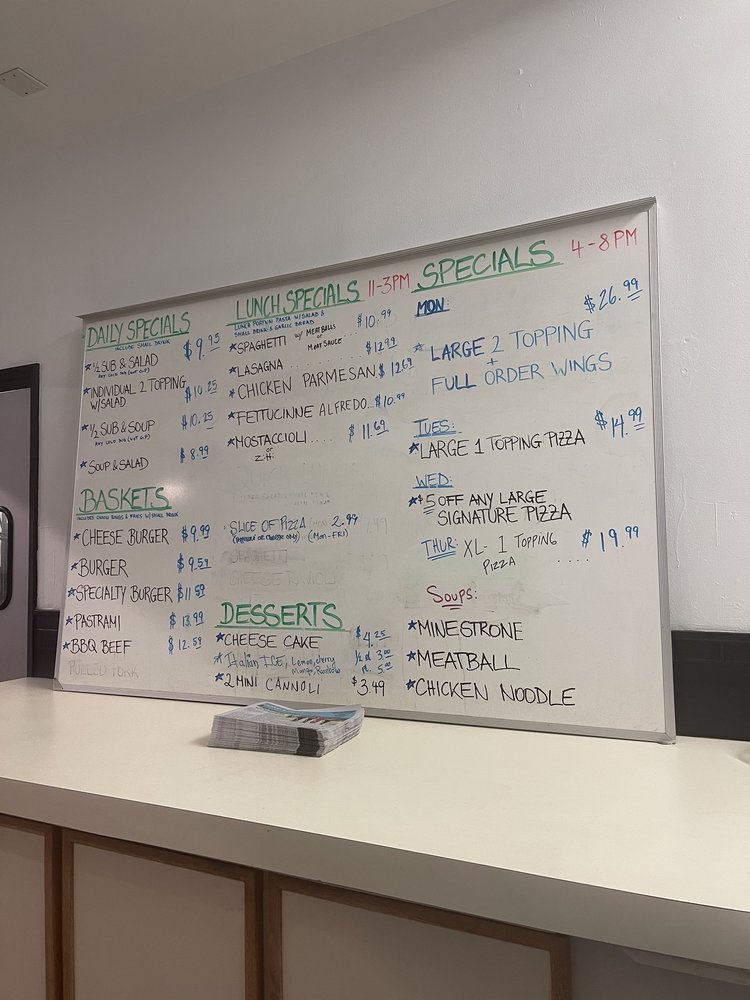 DAILY SPECIALS
INCLUDE SMALL DRINK
★ ½ SUB & SALAD $9.95
★ INDIVIDUAL 2 TOPPING $10.25
W/SALAD
★ ½ SUB & SOUP $10.25
★ SOUP & SALAD $8.99
BASKETS
★ CHEESE BURGER $9.99
★ BURGER $9.59
★ SPECIALTY BURGER $11.59
★ PASTRAMI $13.99
★ BBQ BEEF $12.59
PULLED PORK
LUNCH SPECIALS 11-3PM
LUNCH PORTION PASTA W/SALAD &
SMALL DRINK & GARLIC BREAD
★ SPAGHETTI W/ MEATBALLS $10.99
or
MEAT SAUCE
★ LASAGNA ........ $12.99
★ CHICKEN PARMESAN $12.69
★ FETTUCINNE ALFREDO... $10.99
★ MOSTACCIOLI .... $11.69
or
Ziti
SLICE OF PIZZA 2.99
(MON-FRI)
DESSERTS
★ CHEESE CAKE $4.25
★ Italian ICE, Lemon, cherry ½ pt 3.00
Mango, Rainbow pt. 5.00
★ 2 MINI CANNOLI $3.49
SPECIALS 4-8PM
MON: $26.99
★ LARGE 2 TOPPING
+
FULL ORDER WINGS
TUES: $14.99
★ LARGE 1 TOPPING PIZZA
WED:
★ $5 OFF ANY LARGE
SIGNATURE PIZZA
THUR: XL- 1 TOPPING $19.99
PIZZA ....
SOUPS:
★ MINESTRONE
★ MEATBALL
★ CHICKEN NOODLE